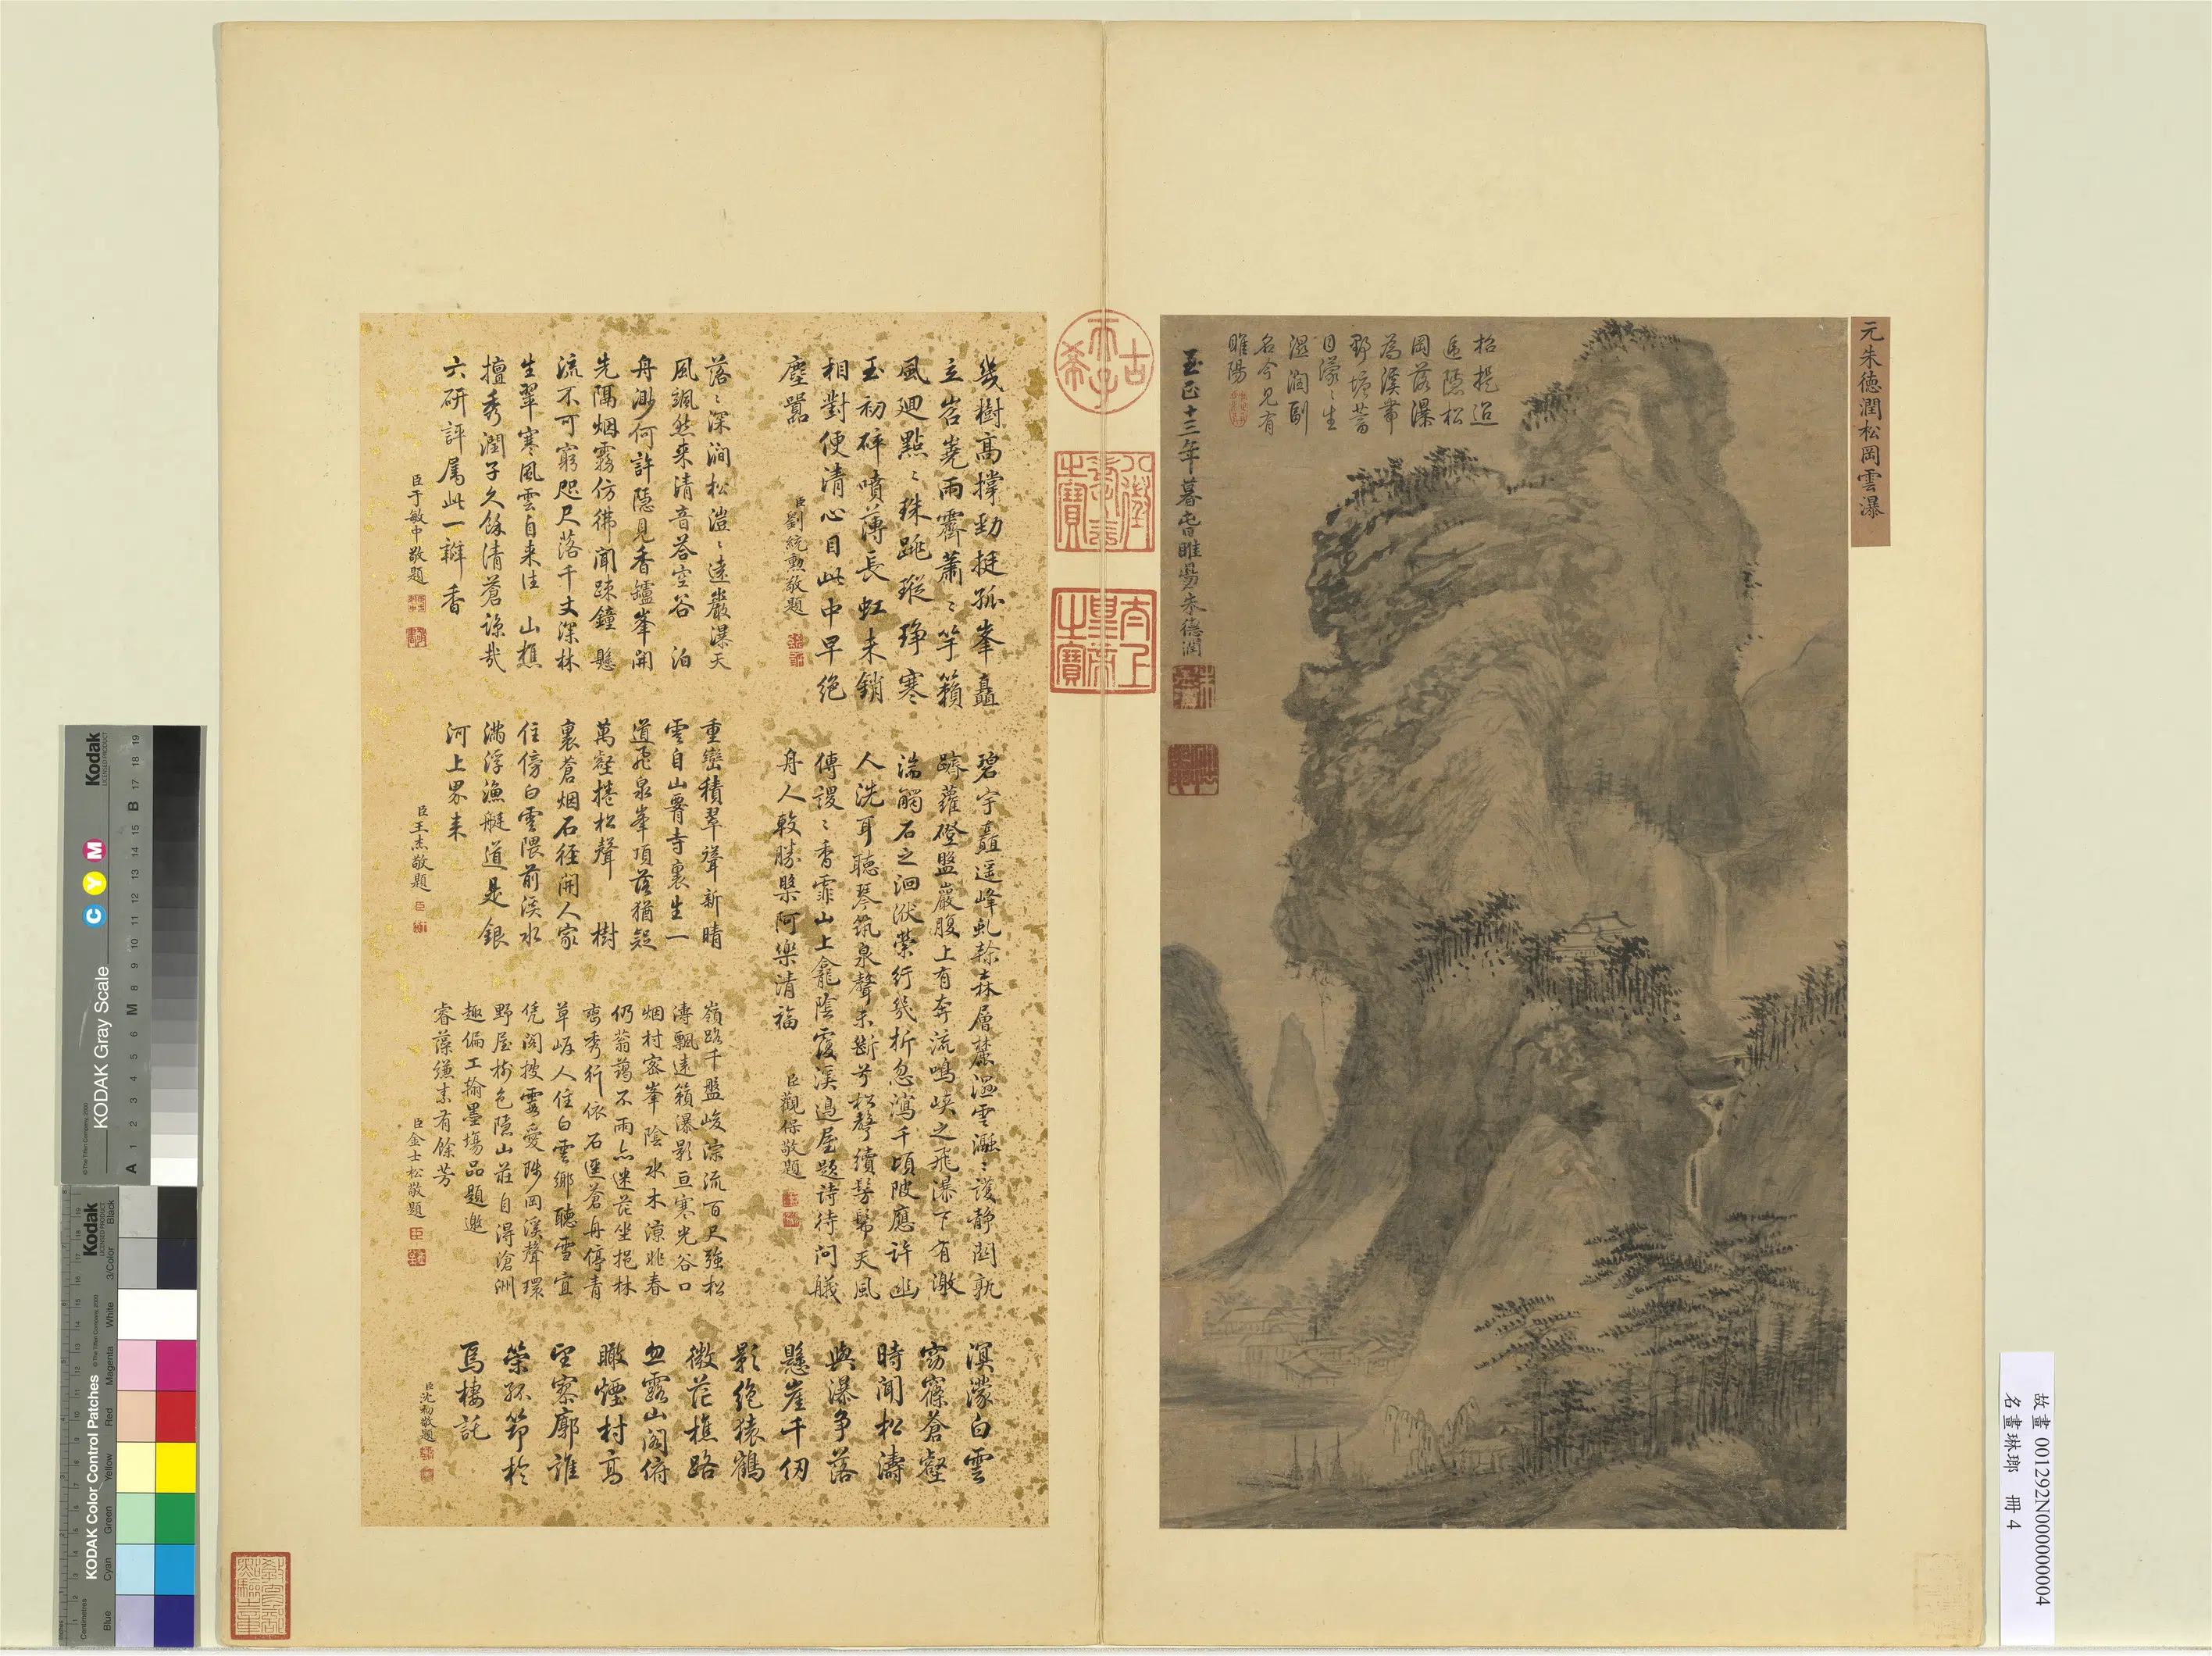 元朱德潤松岡雲瀑
招提迢
遞隱松
岡落瀑
為溪帶
野塘昔
日濛〻生
溼潤副
名今見有
睢陽
至正十三年暮春睢昜朱德潤
古
天子
希
八徵
耄念
之寶
太上
皇帝
之寶
幾樹高撐勁挺孤峯矗
立岧嶤雨霽蕭〻竽籟
風迴點〻珠跳瑽琤寒
玉初碎噴薄長虹未銷
相對便清心目此中早絕
塵囂
臣劉統勳敬題
碧宇矗遥峰虬榦森層麓溼雲瀜〻護静閟孰
躋蘿磴盤巖腹上有奔流鳴峽之飛瀑下有激
湍觸石之洄洑縈行幾折忽瀉千頃陂應許幽
人洗耳聴琴筑泉聲未斷兮松聲續髣髴天風
傳謖〻香霏山上龕陰覆溪邊屋題詩待問艤
舟人較勝槃阿樂清福
臣觀保敬題
溟濛白雲
窈窱蒼壑
時聞松濤
與瀑争落
懸崖千仞
影絶猿鶴
微茫樵路
忽露山閣俯
瞰煙村高
望寥廓誰
策孤笻於
焉棲託
臣沈初敬題
落〻深澗松溰〻遠巖瀑天
風颯然来清音答空谷 泊
舟渺何許隱見香鑪峯開
先隔烟霧仿彿聞踈鐘 懸
流不可窮咫尺落千丈深林
生翠寒風雲自来往 山樵
擅秀潤子久餘清蒼諒哉
六研評屬此一瓣香
臣于敏中敬題
重巒積翠聳新晴
雲自山霤寺裏生一
道飛泉峯項落猶疑
萬壑捲松聲 樹
裏蒼烟石徑開人家
住傍白雲隈前溪水
滿浮漁艇道是銀
河上界来
臣王杰敬題
嶺路千盤峻淙流百尺强松
濤飄遠籟瀑影亘寒光谷口
烟村密峯陰水木涼非春
仍蓊藹不雨亦迷茫坐挹林
巒秀行依石逕蒼舟停青
草岸人住白雲鄉聽雪宜
凭閣披雲愛陟岡溪聲環
野屋樹色隱山莊自得滄洲
趣偏工翰墨塲品題邀
睿藻縑素有餘芳
臣金士松敬題
故畫 001292N000000004
名畫琳瑯 冊 4
KODAK Gray Scale
Kodak
C Y M
KODAK Color Control Patches
Kodak
Blue Cyan Green Yellow Red Magenta White 3/Color Black
A 1 2 3 4 5 6 M 8 9 10 11 12 13 14 15 B 17 18 19